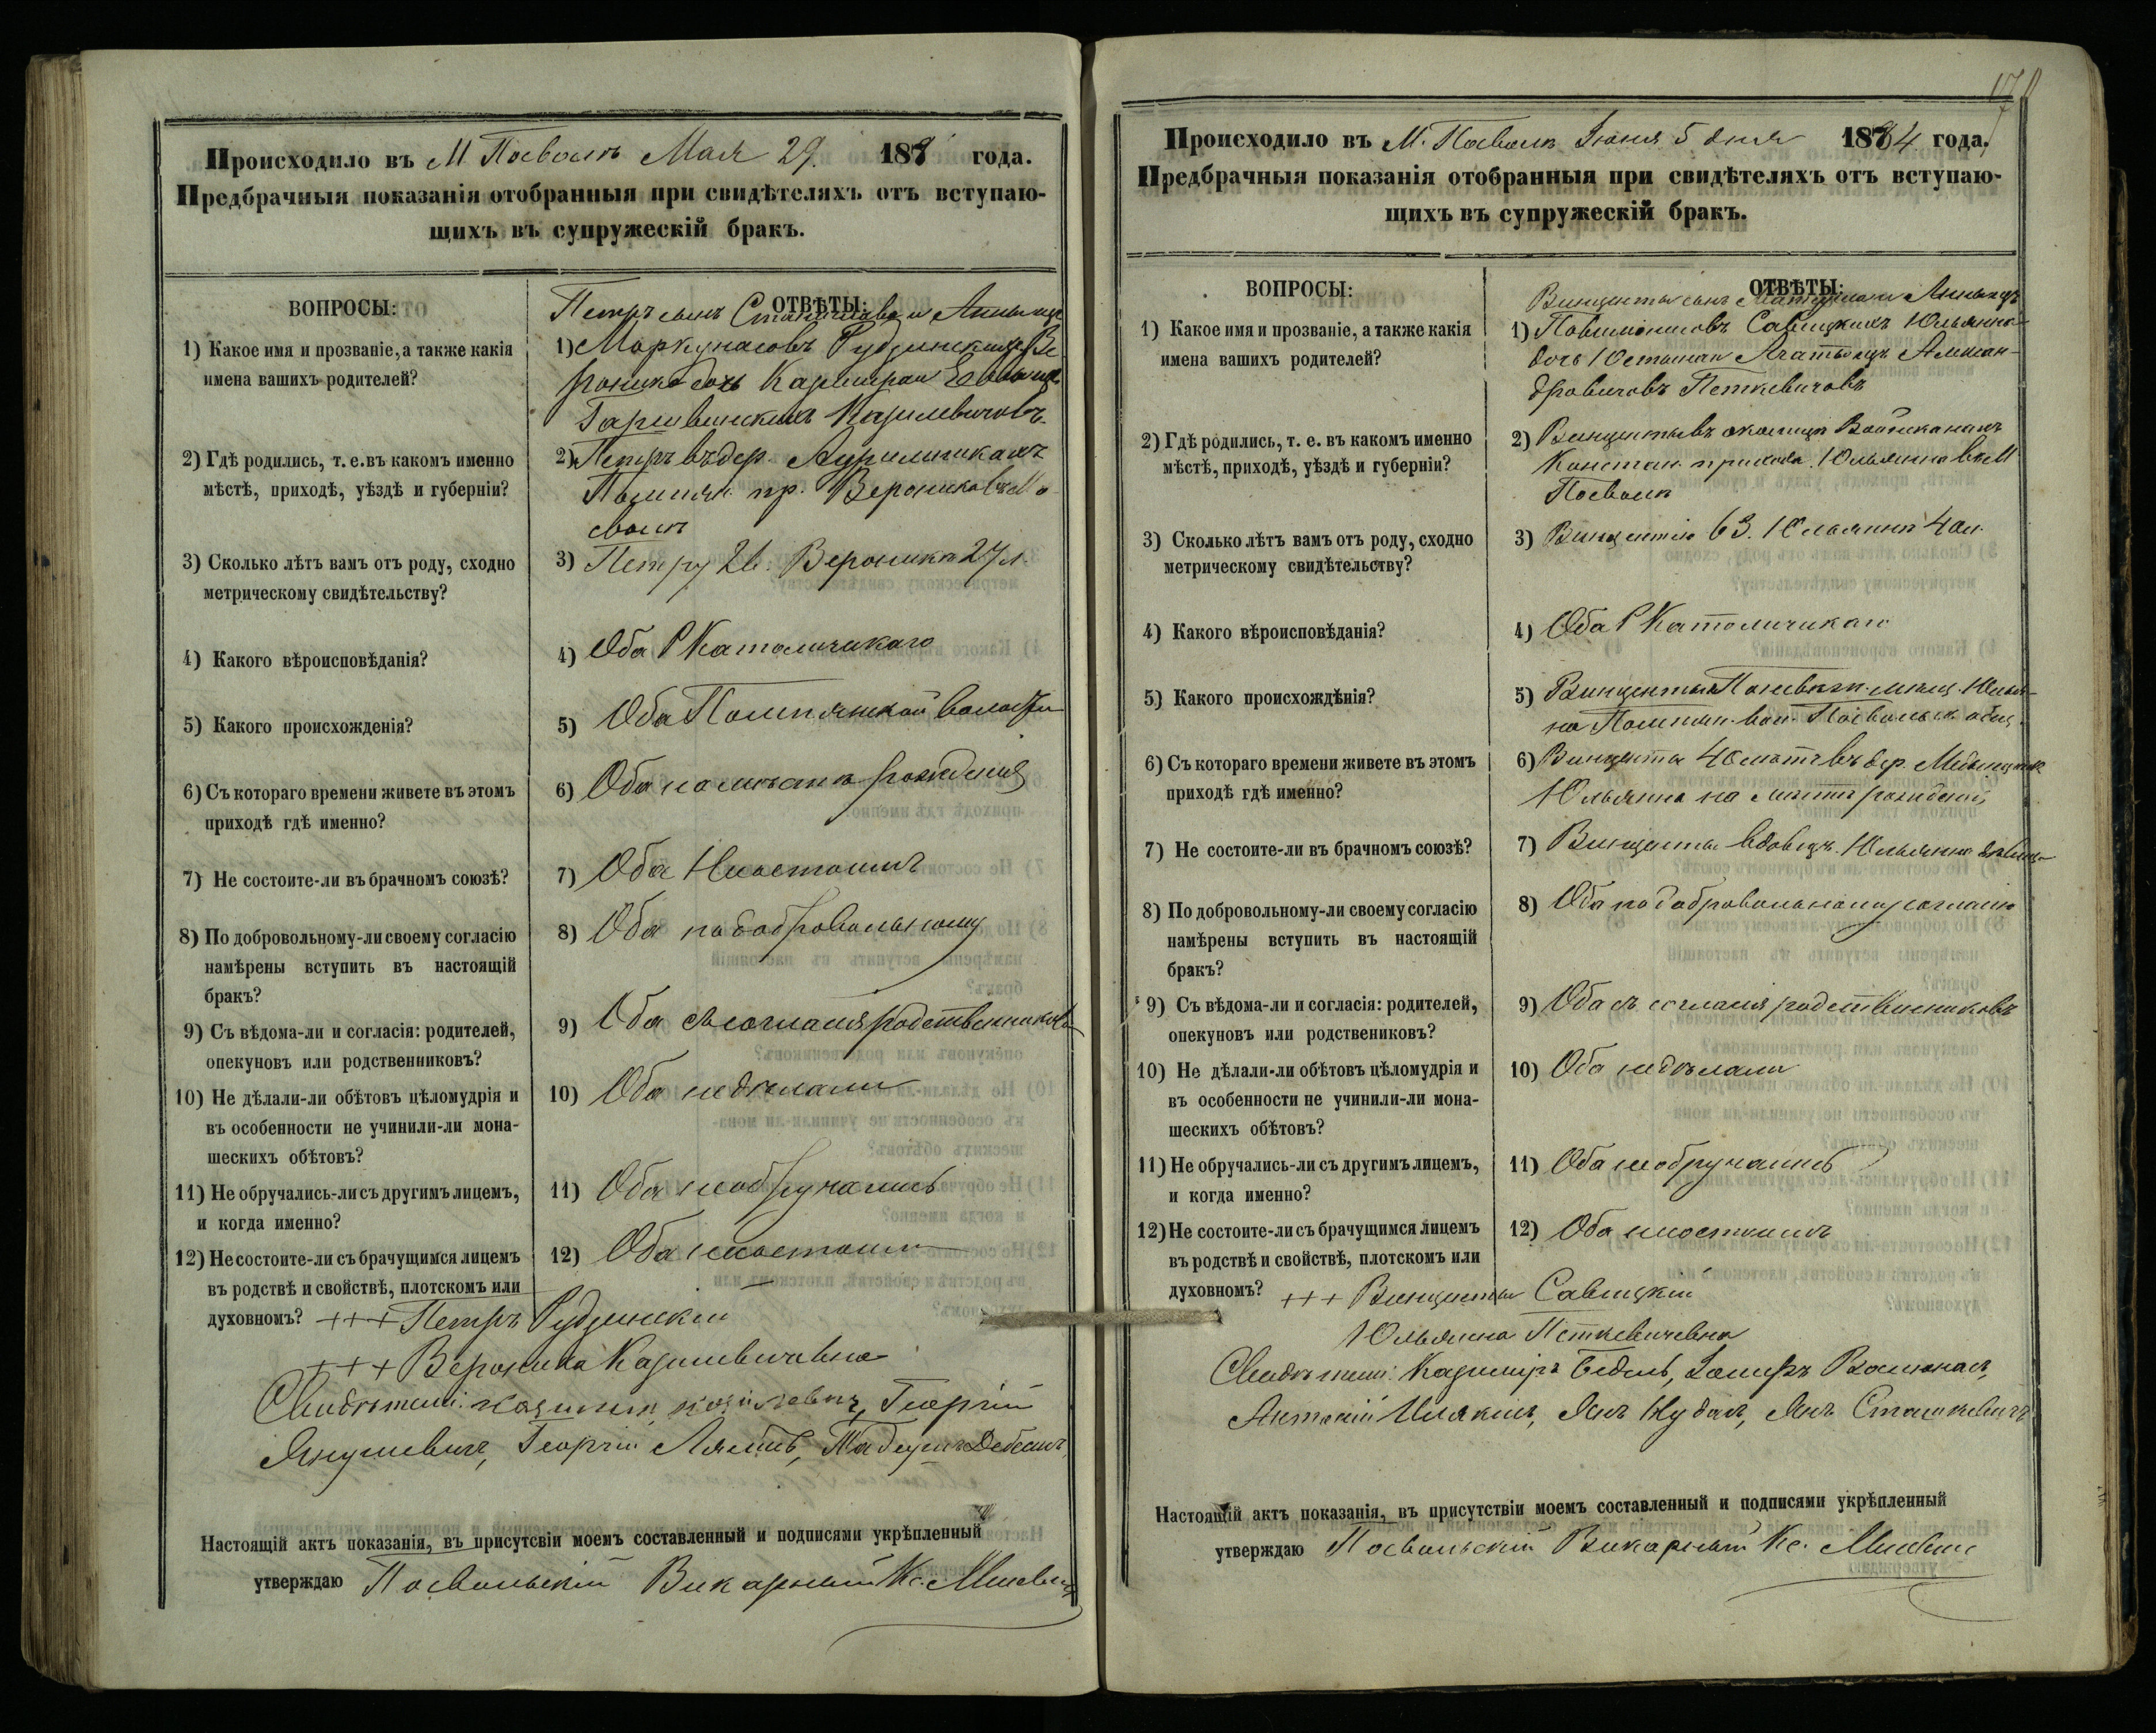 Происходило въ М. Посволѣ Мая 29. 188 года.
Предбрачныя показанія отобранныя при свидѣтеляхъ отъ вступаю-
щихъ въ супружескій бракъ.
ВОПРОСЫ:
ОТВѢТЫ:
1) Какое имя и прозваніе, а также какія
имена вашихъ родителей?
Петръ сынъ Станислава и Анны изъ
1) Маркунасовъ Рудзинскихъ Ве-
роника дочь Казимира и
Казилевичовъ
2) Гдѣ родились, т. е. въ какомъ именно
мѣстѣ, приходѣ, уѣздѣ и губерніи?
2) Петръ въ дер.
Помпян. пр. Вероника въ По-
сволѣ
3) Сколько лѣтъ вамъ отъ роду, сходно
метрическому свидѣтельству?
3) Петру 26. Вероникѣ 27 л.
4) Какого вѣроисповѣданія?
4) Оба Р Католическаго
5) Какого происхожденія?
5) Оба Помпянской волости
6) Съ котораго времени живете въ этомъ
приходѣ гдѣ именно?
6) Оба на мѣстѣ рожденія
7) Не состоите-ли въ брачномъ союзѣ?
7) Оба Несостоимъ
8) По добровольному-ли своему согласію
намѣрены вступить въ настоящій
бракъ?
8) Оба по добровольному
9) Съ вѣдома-ли и согласія: родителей,
опекуновъ или родственниковъ?
9) Оба съ согласія родственниковъ
10) Не дѣлали-ли обѣтовъ цѣломудрія и
въ особенности не учинили-ли мона-
шескихъ обѣтовъ?
10) Оба недѣлали
11) Не обручались-ли съ другимъ лицемъ,
и когда именно?
11) Оба необручались
12) Не состоите-ли съ брачущимся лицемъ
въ родствѣ и свойствѣ, плотскомъ или
духовномъ?
12) Оба несостоимъ
+++ Петръ Рудзинскій
+++ Вероника Казилевичевна
Свидѣтели: Георгій
Янушевичъ, Георгій
Настоящій актъ показанія, въ присутсвіи моемъ составленный и подписями укрѣпленный
утверждаю Посвольскій Викарный Кс.
Происходило въ М. Посволѣ Іюня 5 дня 1884 года.
Предбрачныя показанія отобранныя при свидѣтеляхъ отъ вступаю-
щихъ въ супружескій бракъ.
ВОПРОСЫ:
ОТВѢТЫ:
1) Какое имя и прозваніе, а также какія
имена вашихъ родителей?
Винцентый сынъ и Анны изъ
1) Савицкихъ Юльянна
дочь Юстына и Агаты изъ Алексан-
дровичовъ Петкевичовъ
2) Гдѣ родились, т. е. въ какомъ именно
мѣстѣ, приходѣ, уѣздѣ и губерніи?
2) Винцентый въ околицѣ
Констан. прихода. Юльянна въ М
Посволѣ
3) Сколько лѣтъ вамъ отъ роду, сходно
метрическому свидѣтельству?
3) Винцентію 63. Юльяннѣ 40 л.
4) Какого вѣроисповѣданія?
4) Оба Р Католическаго
5) Какого происхождѣнія?
5) Винцентый Поневѣж. мѣщ. Юльян-
на Помпян. вол. Посвольск. общ.
6) Съ котораго времени живете въ этомъ
приходѣ гдѣ именно?
6) Винцентый 40 лѣтъ въ дер.
Юльянна на мѣстѣ рожденія
7) Не состоите-ли въ брачномъ союзѣ?
7) Винцентый вдовецъ. Юльянна дѣвица
8) По добровольному-ли своему согласію
намѣрены вступить въ настоящій
бракъ?
8) Оба по добровольному согласію
9) Съ вѣдома-ли и согласія: родителей,
опекуновъ или родствениковъ?
9) Оба съ согласія родственниковъ
10) Не дѣлали-ли обѣтовъ цѣломудрія и
въ особенности не учинили-ли мона-
шескихъ обѣтовъ?
10) Оба недѣлали
11) Не обручались-ли съ другимъ лицемъ,
и когда именно?
11) Оба необручались
12) Не состоите-ли съ брачущимся лицемъ
въ родствѣ и свойствѣ, плотскомъ или
духовномъ?
12) Оба несостоимъ
+++ Винцентый Савицкій
Юльянна Петкевичевна
Свидѣтели: Казимиръ Іосифъ
Антоній Янъ Янъ Сташкевичъ
Настоящій актъ показанія, въ присутствіи моемъ составленный и подписями укрѣпленный
утверждаю Посвольскій Викарный Кс.